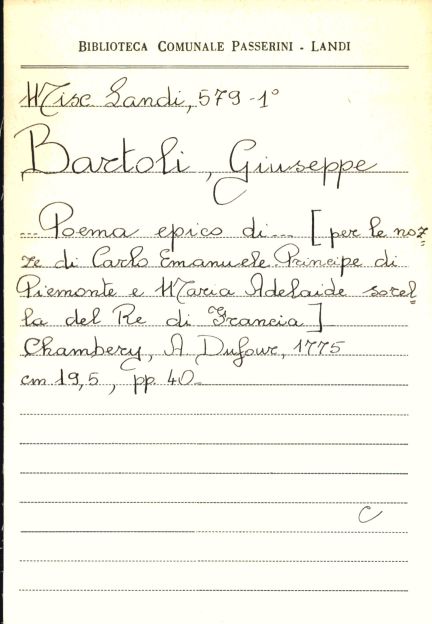 BIBLIOTECA COMUNALE PASSERINI - LANDI
Misc Landi, 579 - 1°
Bartoli, Giuseppe
... Poema epico di... [per le noz=
ze di Carlo Emanuele Principe di
Piemonte e Maria Adelaide sorel=
la del Re di Francia]
Chambery, A Dufour, 1775
cm 19,5, pp. 40.
C